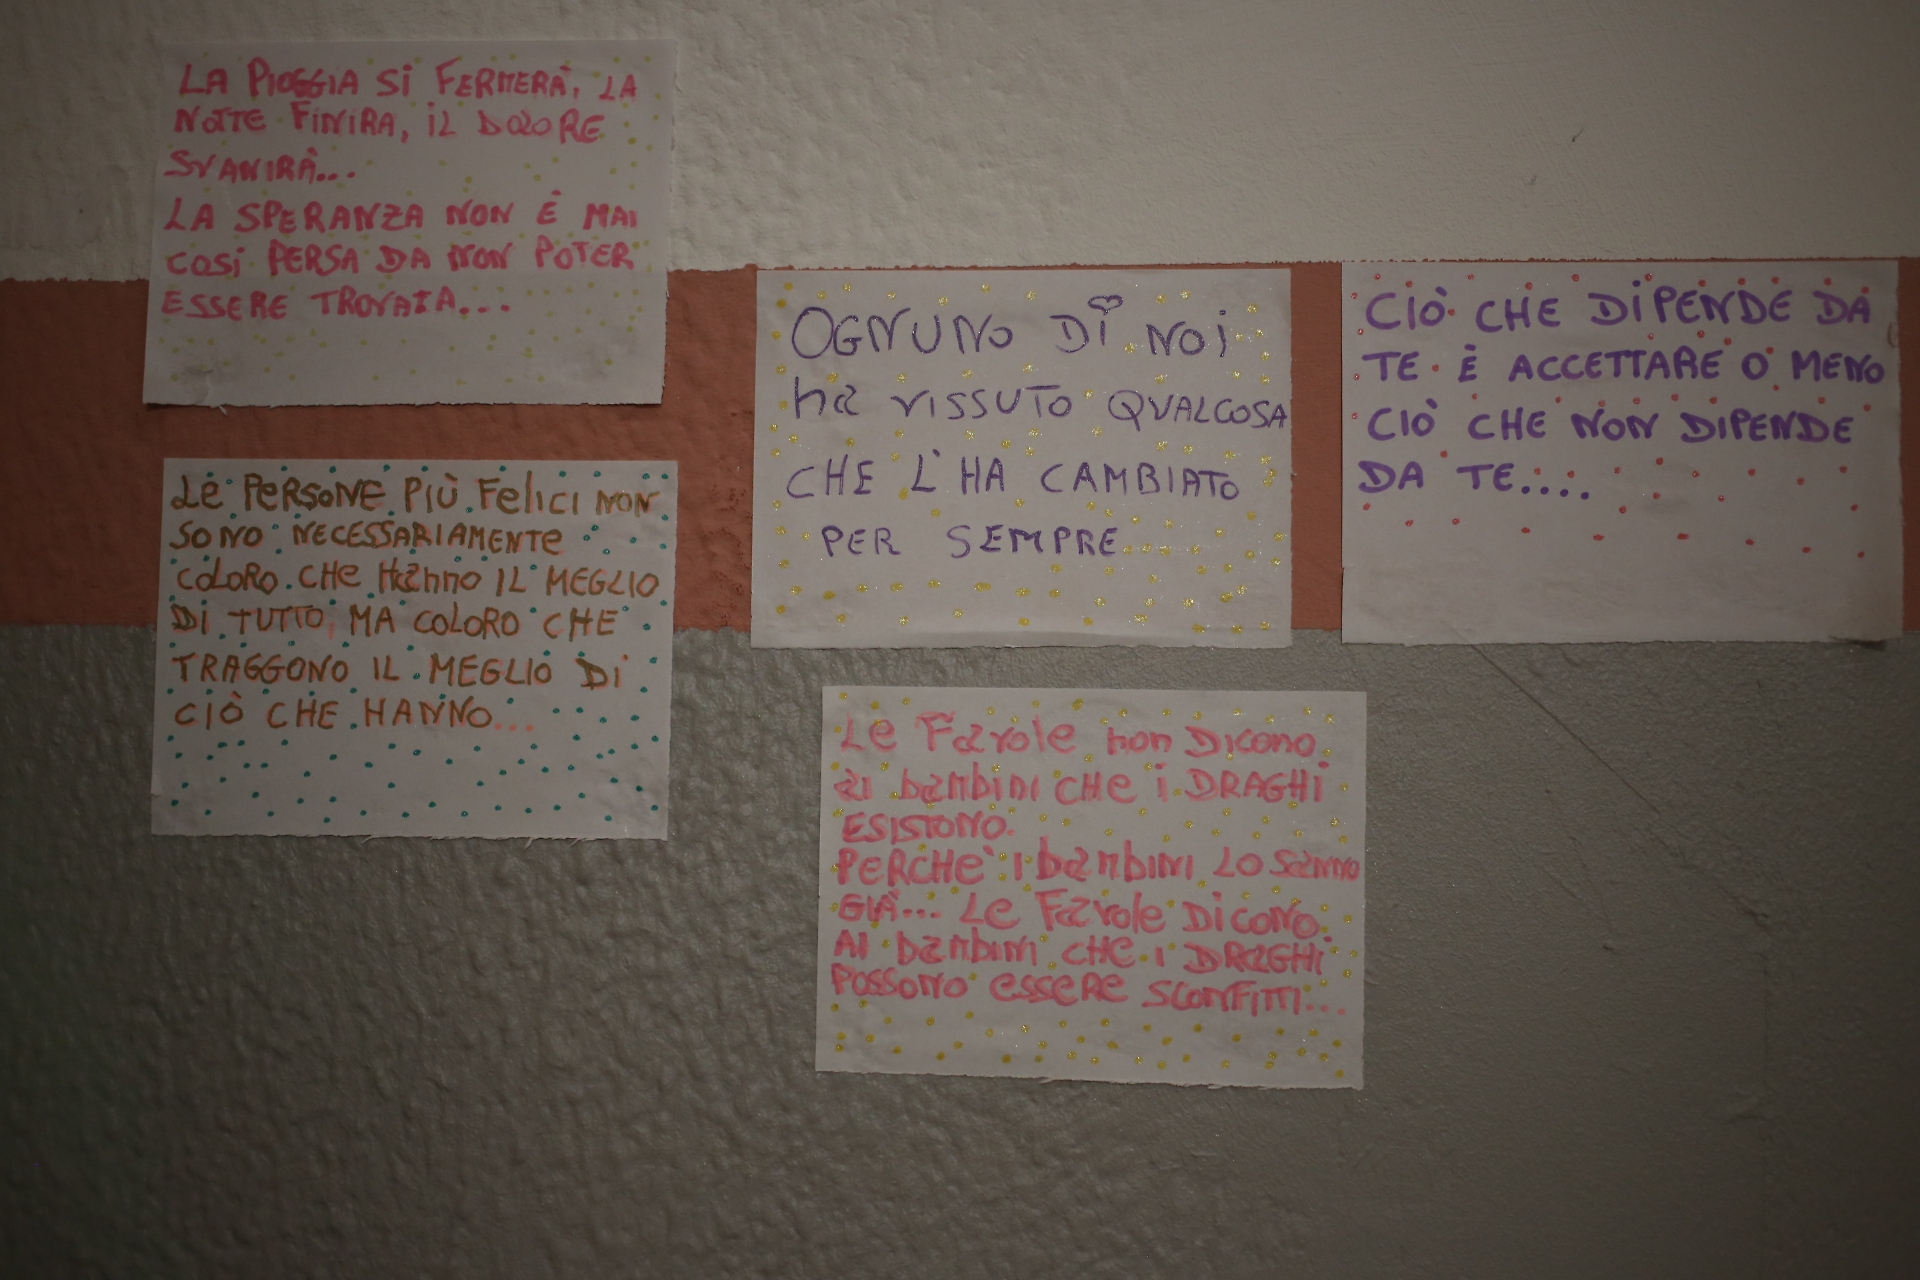 LA PIOGGIA Si FERMERÀ, LA
NOTTE FINIRA, iL DOLORE
SVANIRÀ...
LA SPERANZA NON È MAI
COSi PERSA DA NON POTER
ESSERE TROVATA...
LE PERSONE PIÙ FeliCI NON
SONO NECESSARIAMENTe
COLORO CHe Hanno IL MEGLIO
DI TUTTO, MA COLORO CHE
TRAGGONO IL MEGLIO Di
CIÒ CHE HANNO...
OGNUNO Di NOi
ha VISSUTO QUALCOSA
CHE L'HA CAMBIATO
PER SEMPRE
CIÒ CHE DiPENDE DA
TE È ACCETTARE O MENO
CIÒ CHE NON DIPENDE
DA TE....
Le Favole non Dicono
ai bambini CHe i DRAGHi
ESISTONO.
PeRCHe' i bambini LO Sanno
GIÀ... Le Favole Dicono
AI bambini CHe i DRaGHi
POSSONO esseRe SCONFITTI...